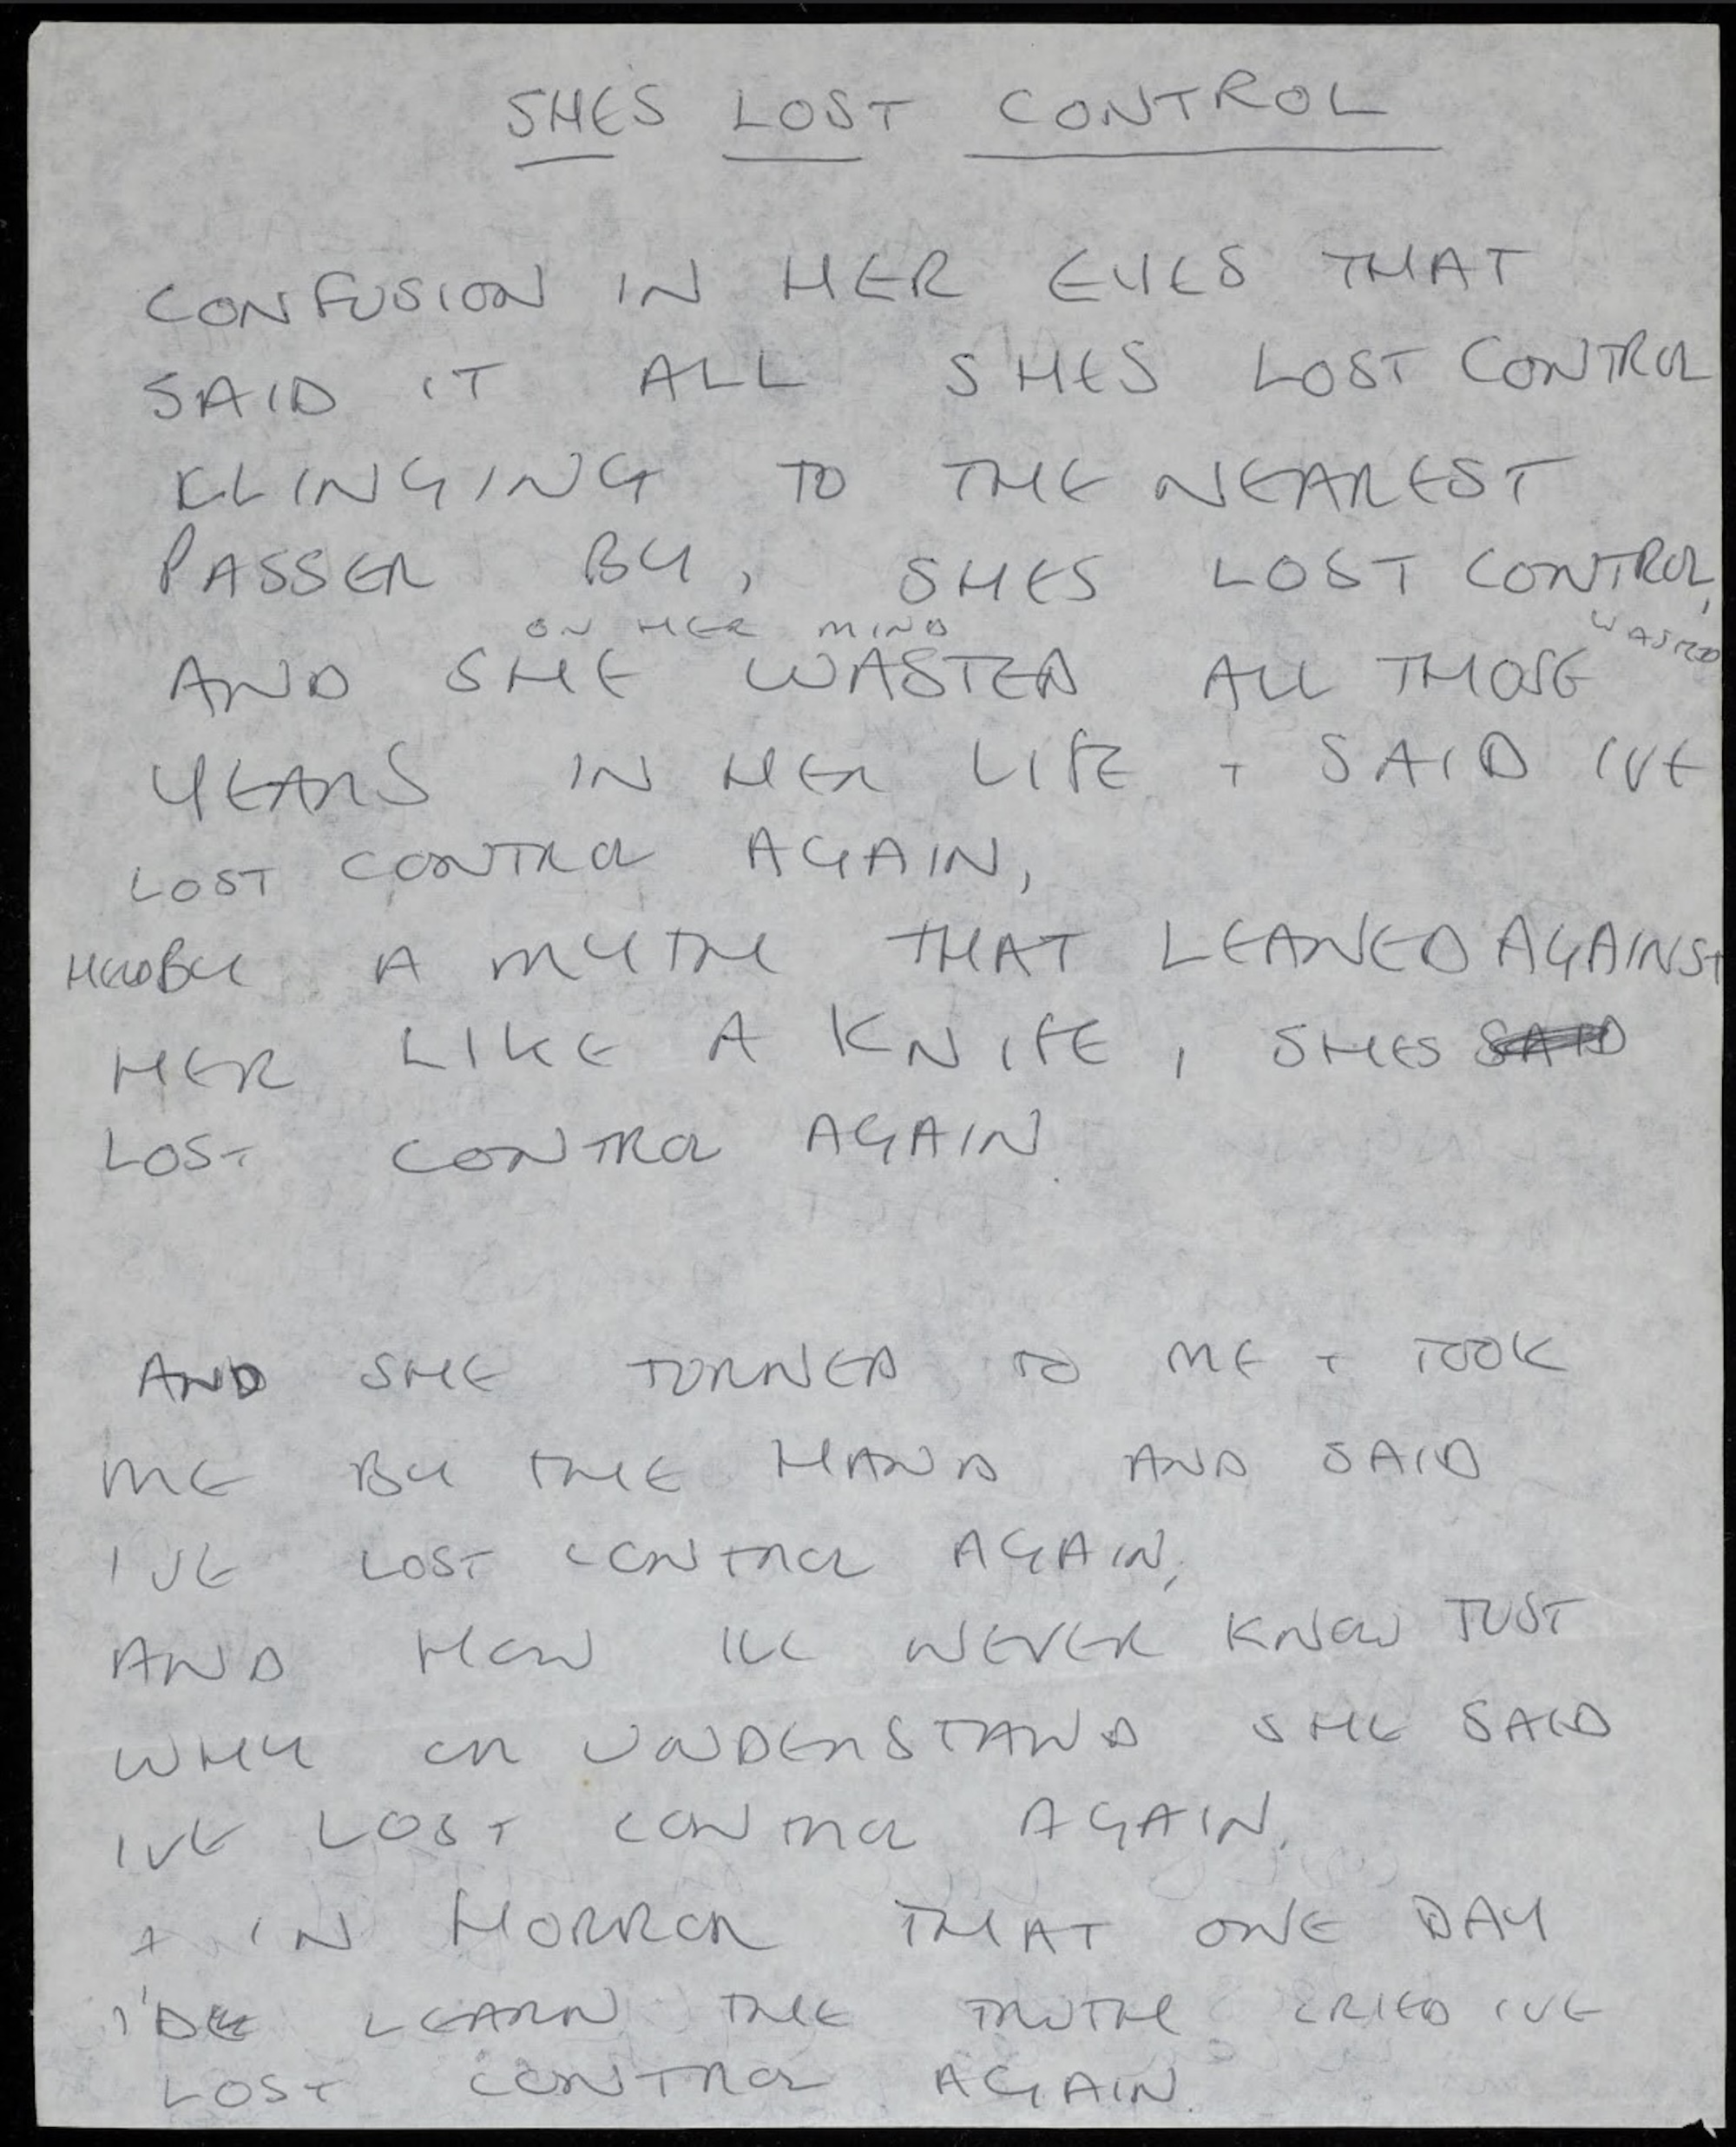 SHES LOST CONTROL
CONFUSION IN HER EYES THAT
SAID IT ALL SHES LOST CONTROL
KLINGING TO THE NEAREST
PASSER BY, SHES LOST CONTROL,
ON HER MIND WASTED
AND SHE WASTED ALL THOSE
YEARS IN HER LIFE + SAID IVE
LOST CONTROL AGAIN,
HELD BY A MYTH THAT LEANED AGAINST
HER LIKE A KNIFE, SHES SAID
LOST CONTROL AGAIN.
AND SHE TURNED TO ME + TOOK
ME BY THE HAND AND SAID
I'VE LOST CONTROL AGAIN,
AND HOW ILL NEVER KNOW JUST
WHY OR UNDERSTAND SHE SAID
IVE LOST CONTROL AGAIN.
+ IN HORROR THAT ONE DAY
I'D LEARN THE TRUTH CRIED IVE
LOST CONTROL AGAIN.